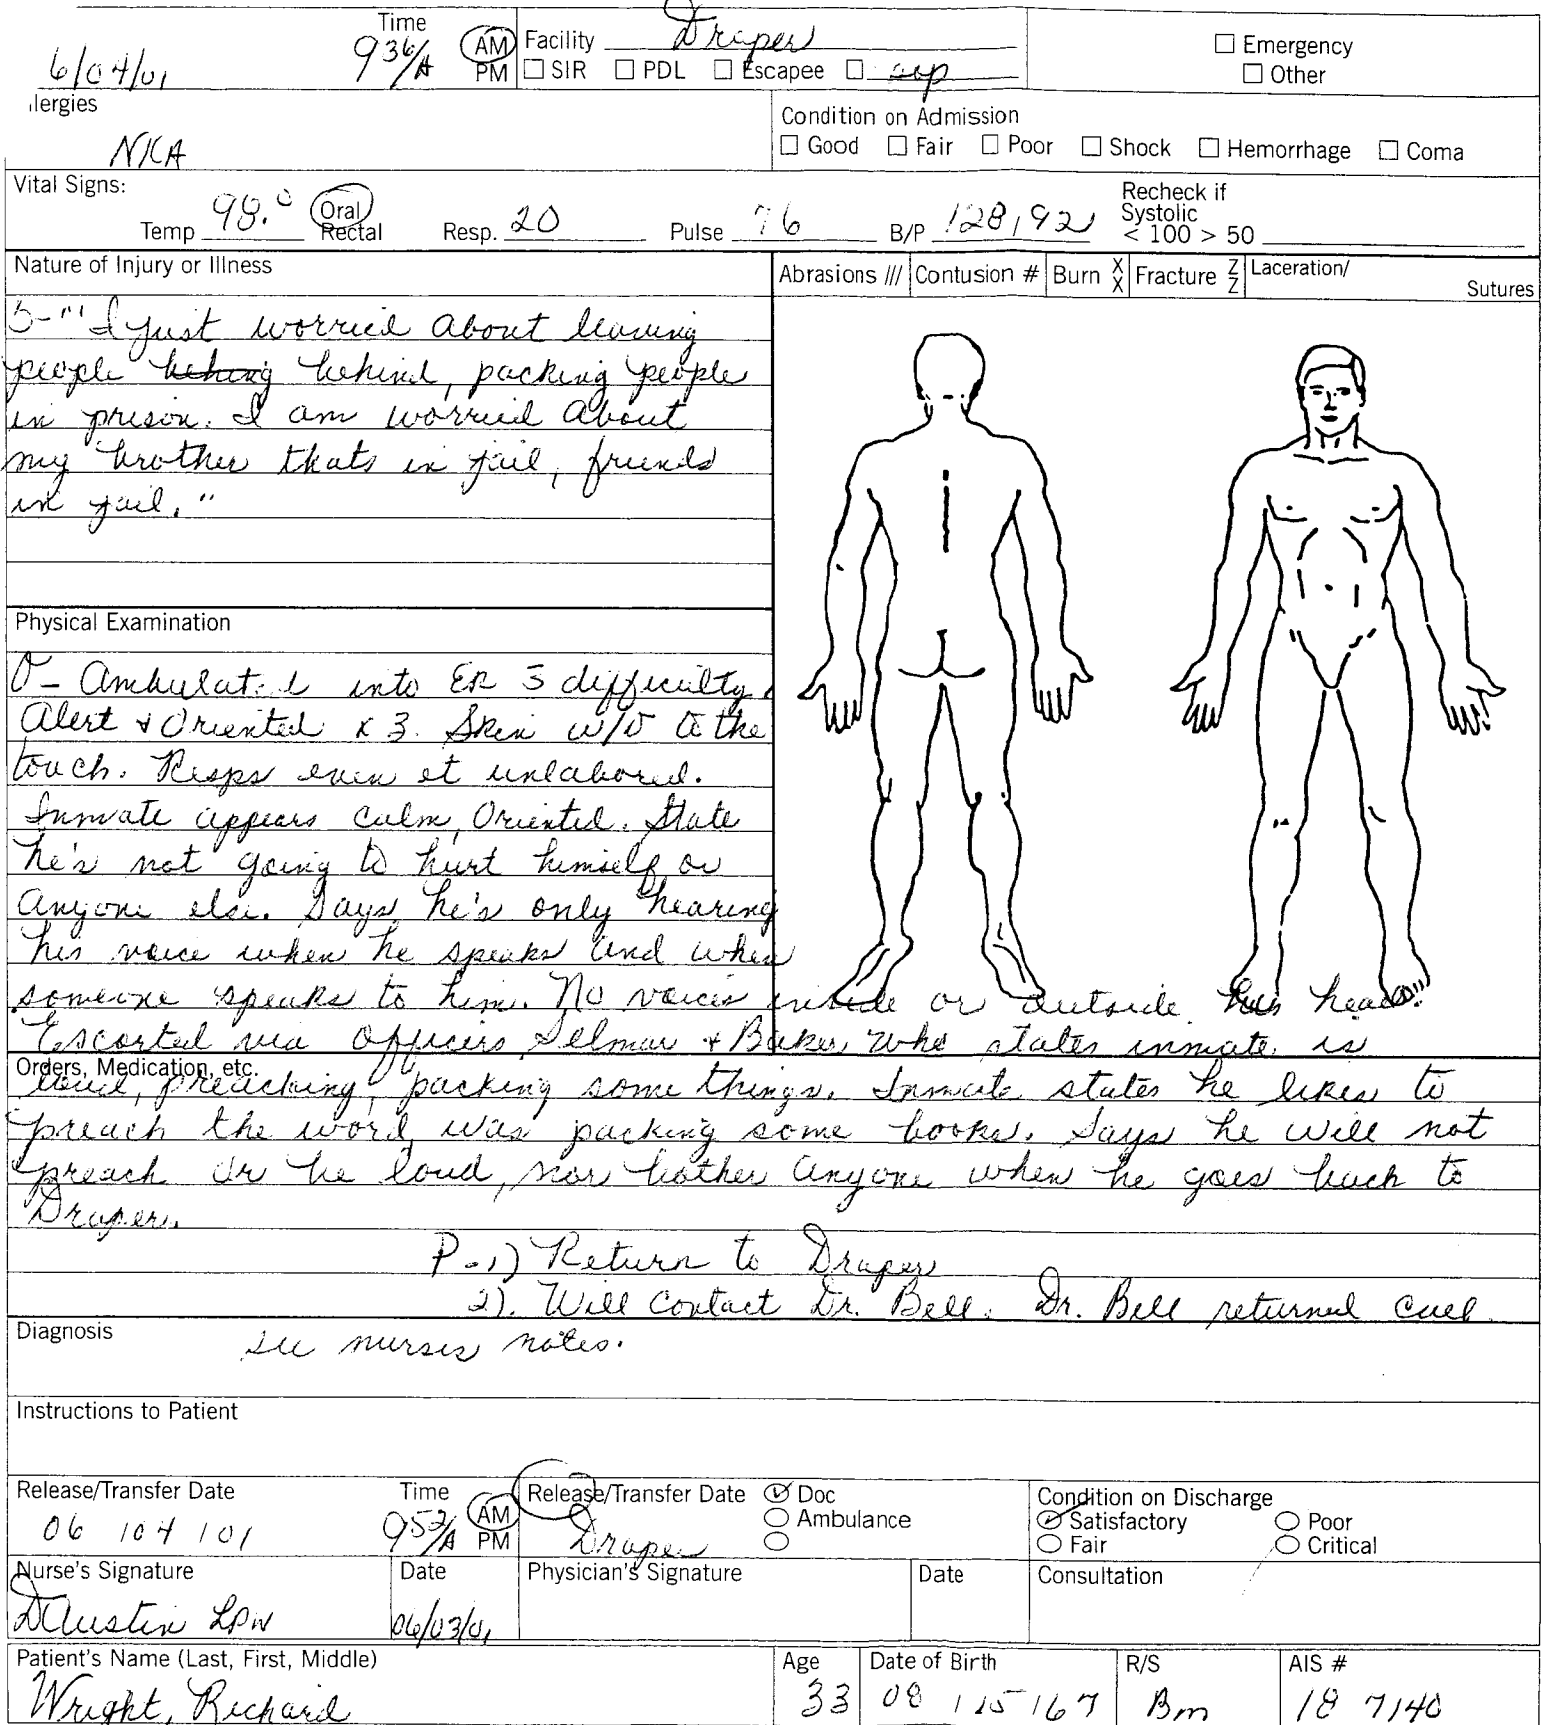 Time
6/04/01 9 36/A AM PM Facility Draper
☐ SIR ☐ PDL ☐ Escapee ☐
☐ Emergency
☐ Other
llergies
NKA
Condition on Admission
☐ Good ☐ Fair ☐ Poor ☐ Shock ☐ Hemorrhage ☐ Coma
Vital Signs:
Temp 98.0 Oral Rectal Resp. 20 Pulse 76 B/P 128/92 Recheck if Systolic < 100 > 50
Nature of Injury or Illness
Abrasions /// Contusion # Burn X X Fracture Z Z Laceration/ Sutures
S-"I just worried about leaving
people behing behind, packing people
in prison. I am worried about
my brother thats in jail, friends
in jail."
Physical Examination
O- Ambulated into ER s̄ difficulty.
Alert + Oriented x 3. Skin w/D to the
touch. Resps even et unlabored.
Inmate appears calm, Oriented. State
he's not going to hurt himself or
anyone else. Says he's only hearing
his voice when he speaks and when
someone speaks to him. No voices inside or outside his head.
Escorted via Officers Selmar + Baker who states inmate is
Orders, Medication, etc.
loud, preaching, packing some things. Inmate states he likes to
preach the word, was packing some books. Says he will not
preach or be loud, nor bother anyone when he goes back to
Draper.
P-1) Return to Draper
2). Will contact Dr. Bell. Dr. Bell returned call
Diagnosis
see nurses notes.
Instructions to Patient
Release/Transfer Date Time Release/Transfer Date ☑ Doc Condition on Discharge
06 / 04 / 01 9 52/A AM PM Draper ○ Ambulance ☑ Satisfactory ○ Poor
○ ○ Fair ○ Critical
Nurse's Signature Date Physician's Signature Date Consultation
DAustin LPN 06/03/01
Patient's Name (Last, First, Middle) Age Date of Birth R/S AIS #
Wright, Richard 33 08 / 15 / 67 Bm 18 7140